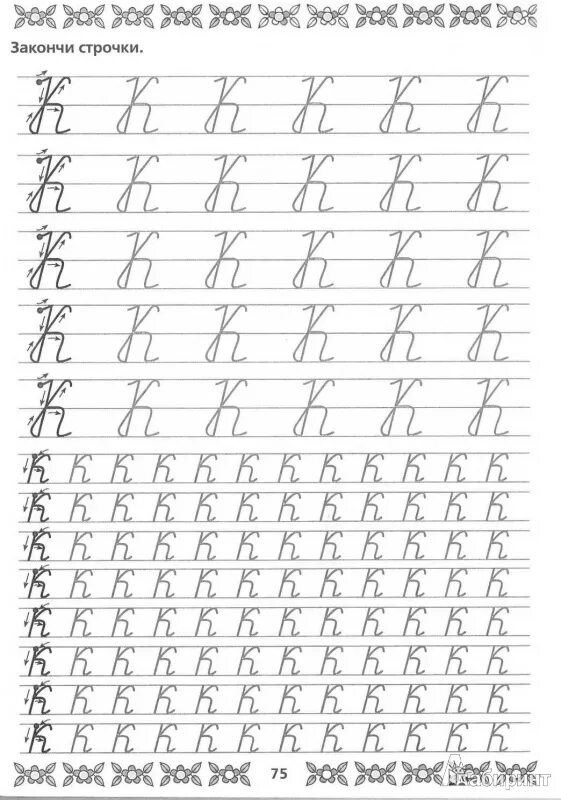 Закончи строчки.
К К К К К К
К К К К К К
К К К К К К
К К К К К К
К К К К К К
к к к к к к к к к к к к
к к к к к к к к к к к к
к к к к к к к к к к к к
к к к к к к к к к к к к
к к к к к к к к к к к к
к к к к к к к к к к к к
к к к к к к к к к к к к
к к к к к к к к к к к к
75
Лабиринт